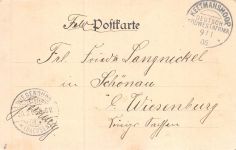 Feld Postkarte
KEETMANSHOOP
DEUTSCH-
SÜDWESTAFRIKA
9/1
06
Frl. Frieda Langnickel
in Schönau
b/ Wiesenburg
Königr. Sachsen
WIESENBURG